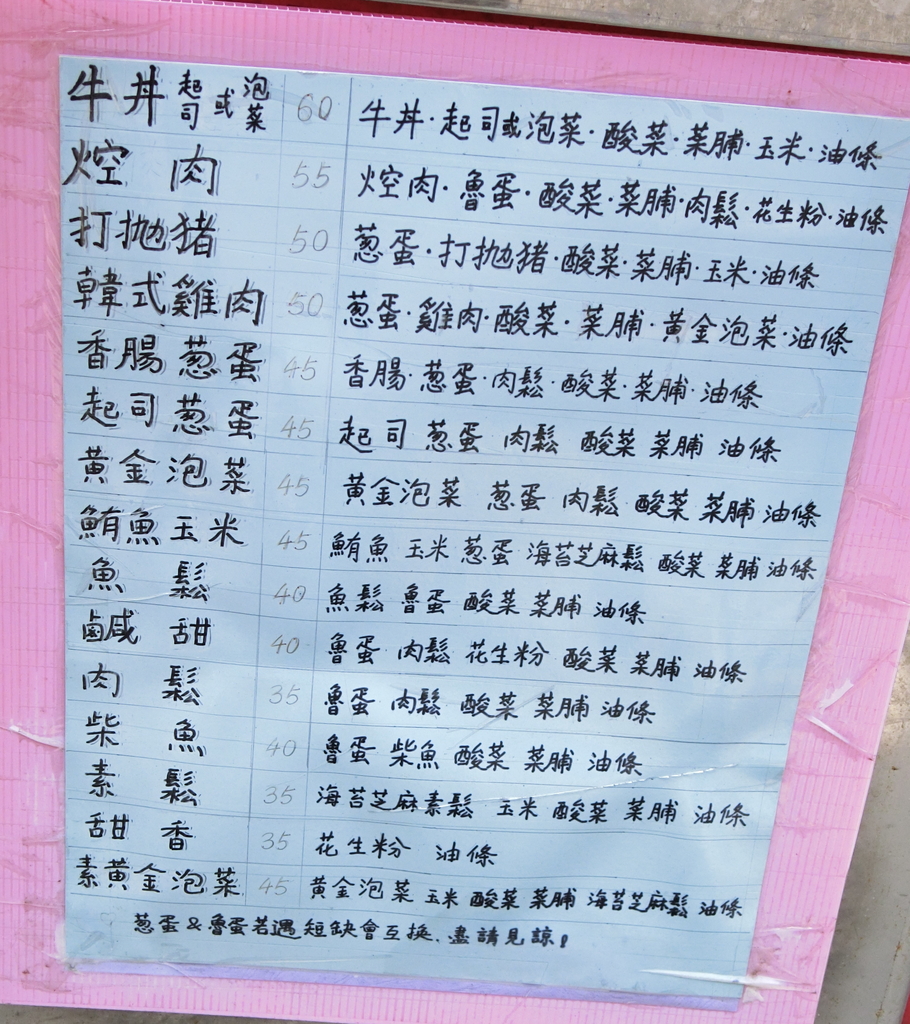 牛丼起司或泡菜 60 牛丼·起司或泡菜·酸菜·菜脯·玉米·油條
焢肉 55 焢肉·魯蛋·酸菜·菜脯·肉鬆·花生粉·油條
打拋猪 50 葱蛋·打拋猪·酸菜·菜脯·玉米·油條
韓式雞肉 50 葱蛋·雞肉·酸菜·菜脯·黃金泡菜·油條
香腸葱蛋 45 香腸·葱蛋·肉鬆·酸菜·菜脯·油條
起司葱蛋 45 起司 葱蛋 肉鬆 酸菜 菜脯 油條
黃金泡菜 45 黃金泡菜 葱蛋 肉鬆 酸菜 菜脯 油條
鮪魚玉米 45 鮪魚 玉米 葱蛋 海苔芝麻鬆 酸菜 菜脯 油條
魚鬆 40 魚鬆 魯蛋 酸菜 菜脯 油條
鹹甜 40 魯蛋 肉鬆 花生粉 酸菜 菜脯 油條
肉鬆 35 魯蛋 肉鬆 酸菜 菜脯 油條
柴魚 40 魯蛋 柴魚 酸菜 菜脯 油條
素鬆 35 海苔芝麻素鬆 玉米 酸菜 菜脯 油條
甜香 35 花生粉 油條
素黃金泡菜 45 黃金泡菜 玉米 酸菜 菜脯 海苔芝麻鬆 油條
葱蛋&魯蛋若遇短缺會互換、盡請見諒!